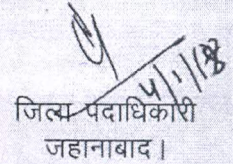 4/1/18
जिला पदाधिकारी
जहानाबाद।